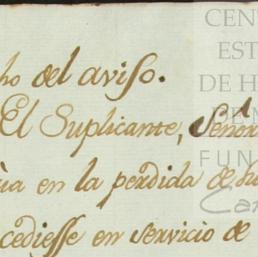 ho del aviso.
El Suplicante, Señor
ùa en la perdida de su
cediesse en servicio de
CEN
EST
DE H
DE M
FUN
Car